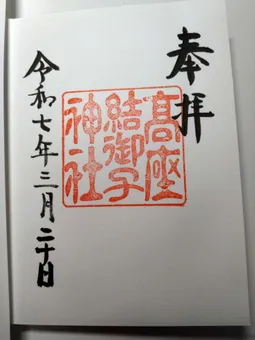 奉拝
高座
結御子
神社
令和七年三月二十日